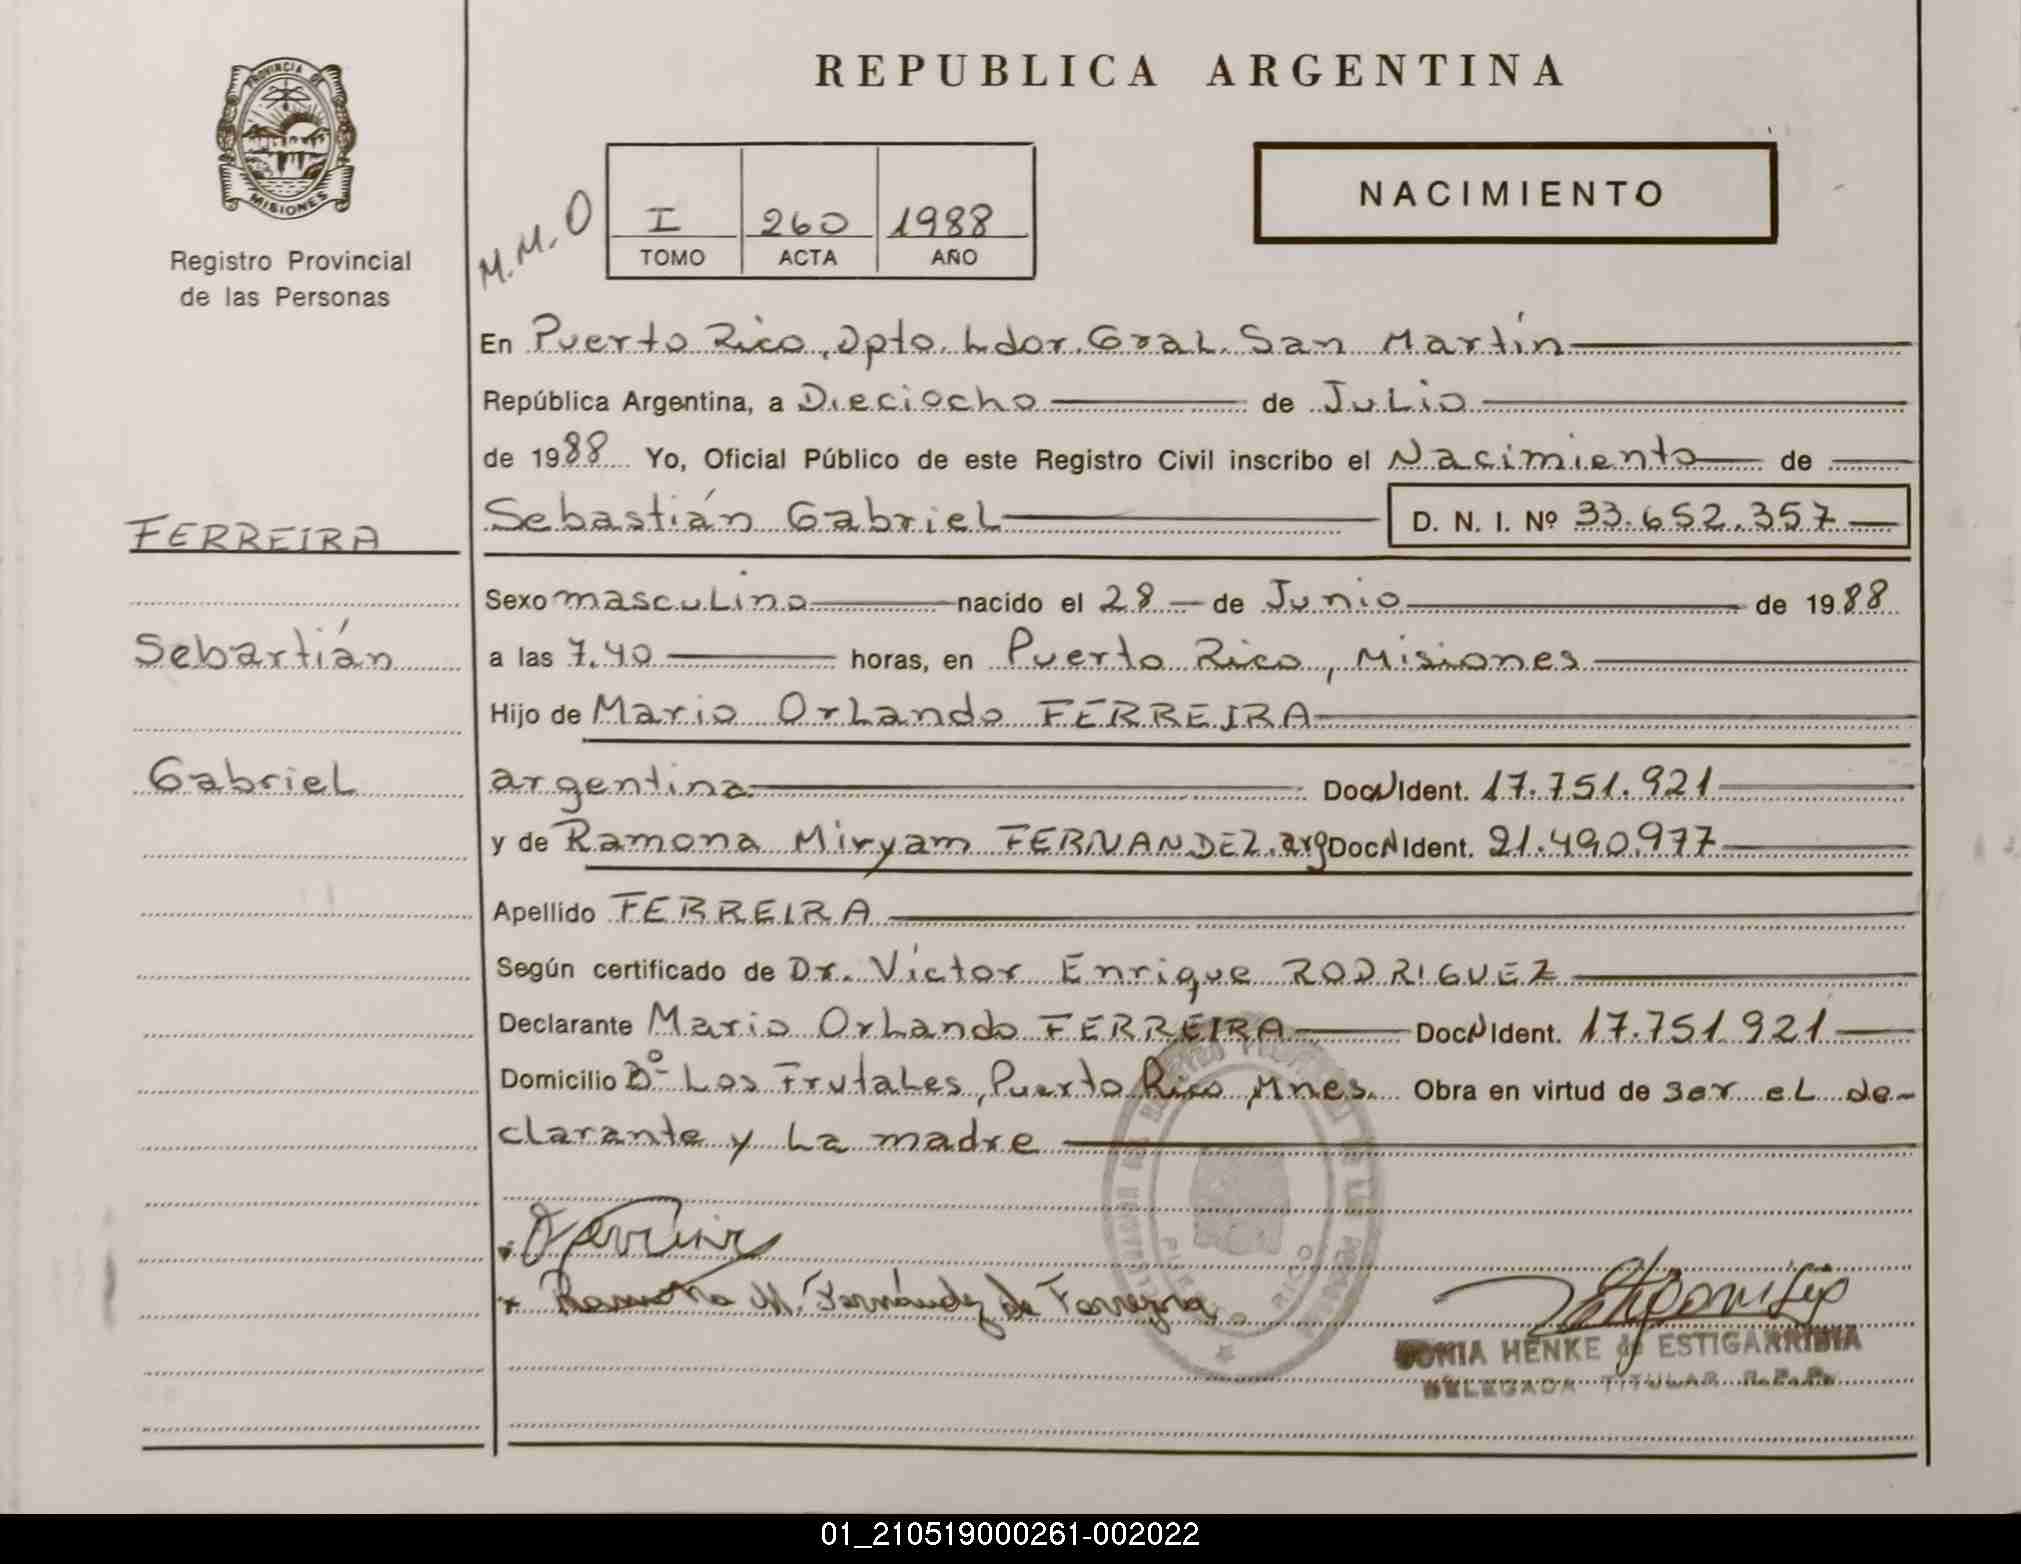 REPUBLICA ARGENTINA
PROVINCIA DE
MISIONES
Registro Provincial
de las Personas
M.M.O
I 260 1988
TOMO ACTA AÑO
NACIMIENTO
En Puerto Rico, Dpto. Ldor. Gral. San Martín
República Argentina, a Dieciocho de Julio
de 1988 Yo, Oficial Público de este Registro Civil inscribo el Nacimiento de
Sebastián Gabriel D. N. I. Nº 33.652.357
FERREIRA
Sebastián
Gabriel
Sexo masculino nacido el 28 de Junio de 1988
a las 7.40 horas, en Puerto Rico, Misiones
Hijo de Mario Orlando FERREIRA
argentina Doc N Ident. 17.751.921
y de Ramona Miryam FERNANDEZ. arg Doc N Ident. 21.490.977
Apellido FERREIRA
Según certificado de Dr. Víctor Enrique RODRIGUEZ
Declarante Mario Orlando FERREIRA Doc N Ident. 17.751.921
Domicilio Bº Los Frutales, Puerto Rico, Mnes. Obra en virtud de ser el de-
clarante y la madre
Ramona M. Fernández de Ferreyra
SONIA HENKE de ESTIGARRIBIA
DELEGADA TITULAR R.P.P.
01_210519000261-002022